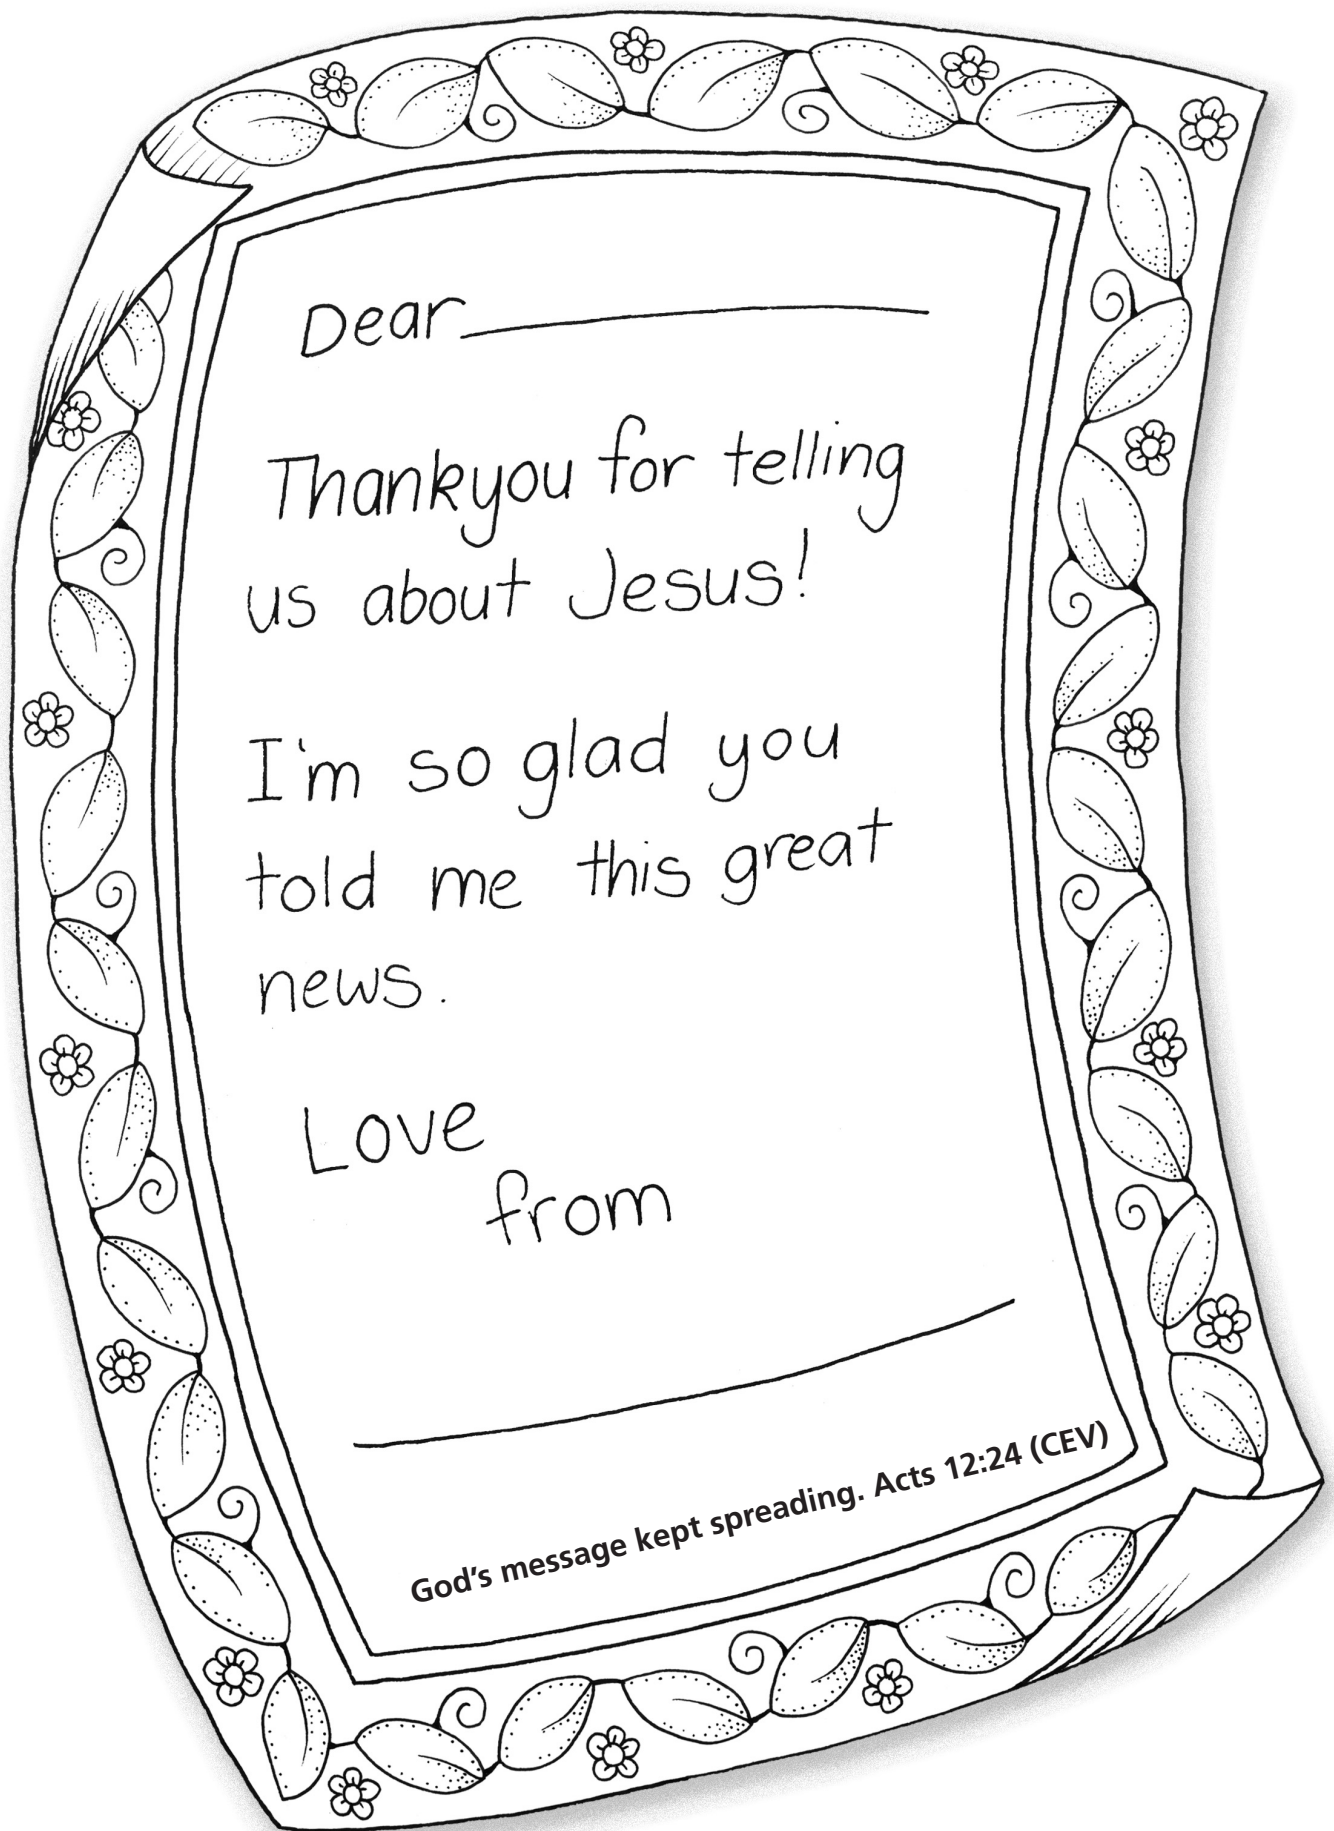 Dear
Thankyou for telling
us about Jesus!
I'm so glad you
told me this great
news.
Love
from
God's message kept spreading. Acts 12:24 (CEV)